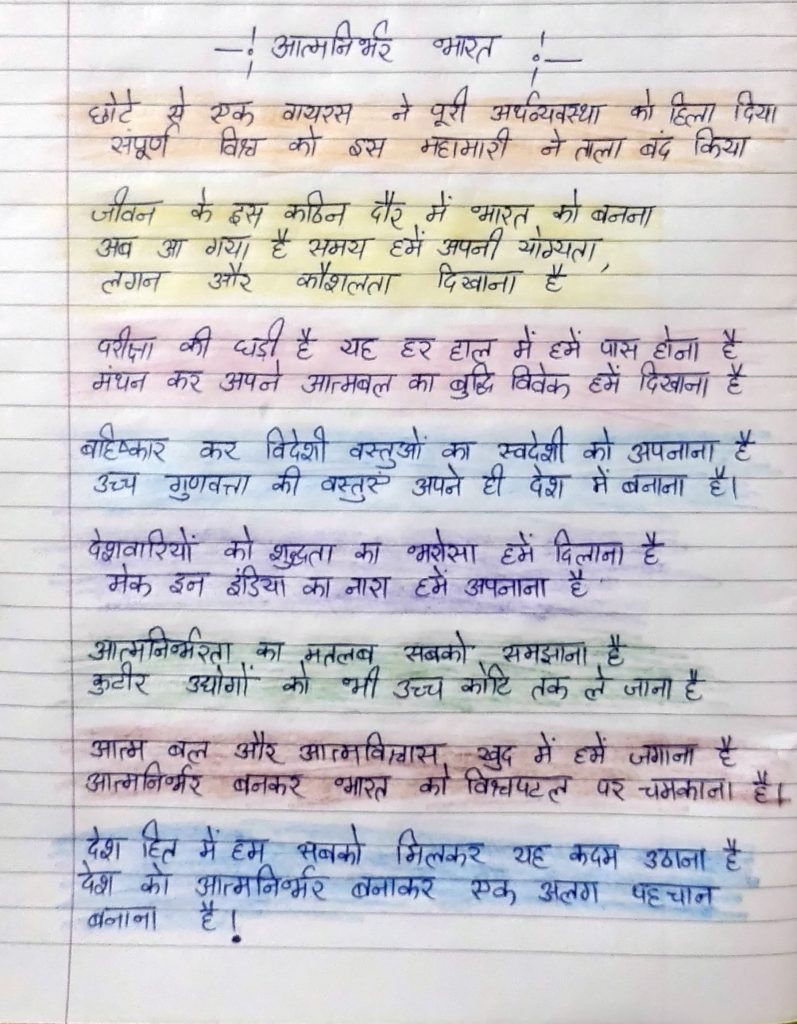 -! आत्मनिर्भर भारत !-
छोटे से एक वायरस ने पूरी अर्थव्यवस्था को हिला दिया
संपूर्ण विश्व को इस महामारी ने ताला बंद किया
जीवन के इस कठिन दौर में भारत को बनना
अब आ गया है समय हमें अपनी योग्यता,
लगन और कौशलता दिखाना है
परीक्षा की घड़ी है यह हर हाल में हमें पास होना है
मंथन कर अपने आत्मबल का बुद्धि विवेक हमें दिखाना है
बहिष्कार कर विदेशी वस्तुओं का स्वदेशी को अपनाना है
उच्च गुणवत्ता की वस्तुएँ अपने ही देश में बनाना है।
देशवारियों को शुद्धता का भरोसा हमें दिलाना है
मेक इन इंडिया का नारा हमें अपनाना है
आत्मनिर्भरता का मतलब सबको समझाना है
कुटीर उद्योगों को भी उच्च कोटि तक ले जाना है
आत्म बल और आत्मविश्वास खुद में हमें जगाना है
आत्मनिर्भर बनकर भारत को विश्वपटल पर चमकाना है।
देश हित में हम सबको मिलकर यह कदम उठाना है
देश को आत्मनिर्भर बनाकर एक अलग पहचान
बनाना है!